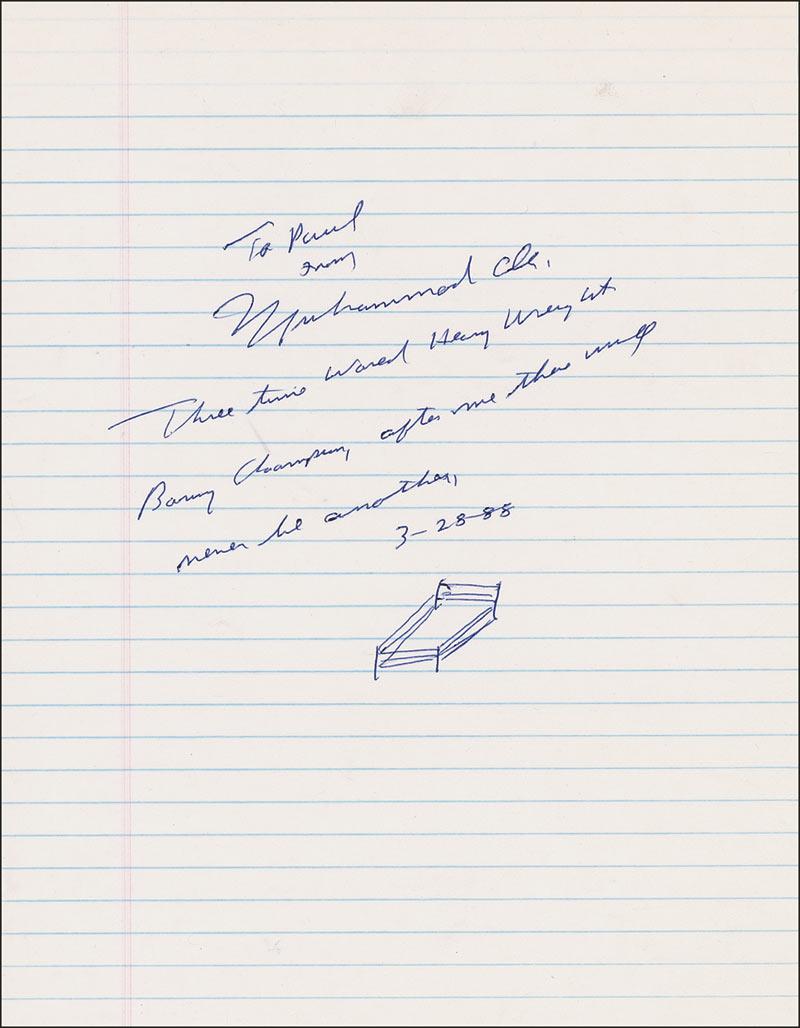 To Paul
From
Muhammad Ali.
Three time World Heavy Weight
Boxing Champion, after me there will
never be another,
3-28-88